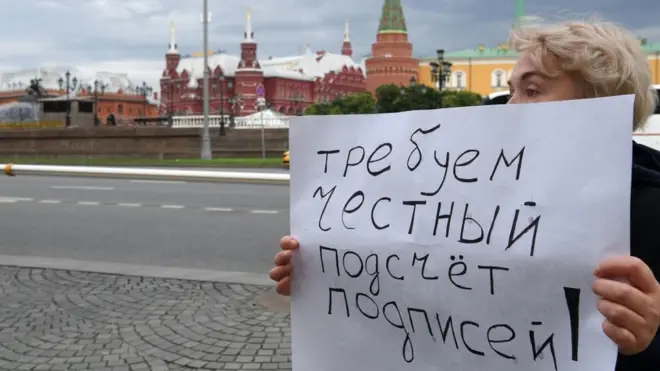 требуем
честный
подсчёт
подписей!